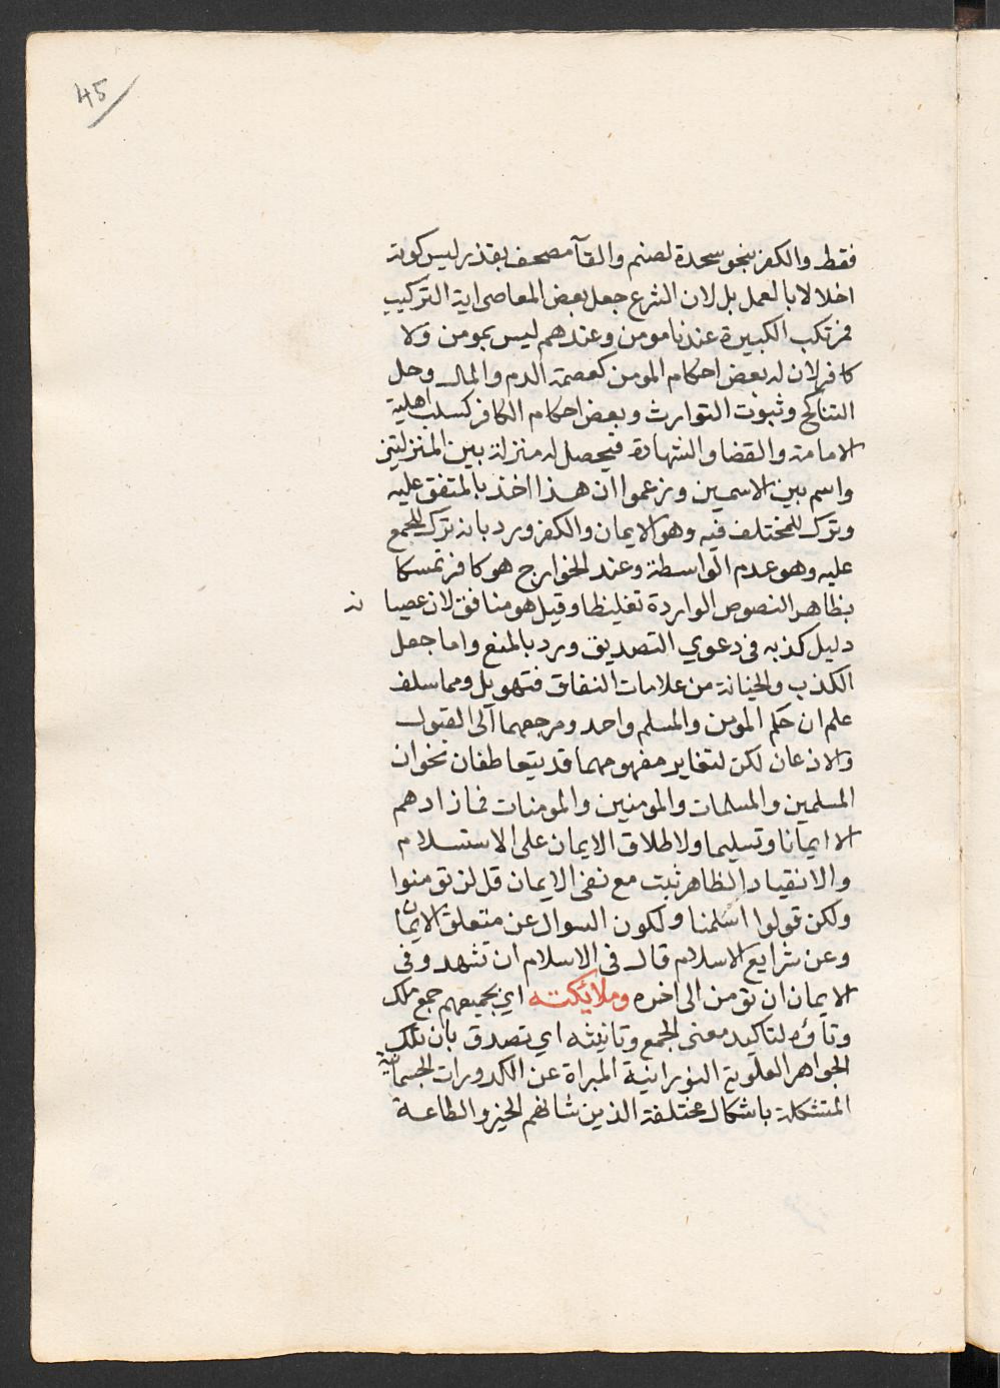 45
فقط والكفر بنحو سجدة لصنم والقآ مصحف بقذر ليس كونه
اخلالا بالعمل بل لان الشرع جعل بعض المعاصي اية التركيب
فمرتكب الكبيرة عندنا مومن وعندهم ليس بمومن ولا
كافر لان له بعض احكام المومن كعصمة الدم والمال وحل
التناكح وثبوت التوارث وبعض احكام الكافر كسلب اهلية
الامامة والقضا والشهادة فيحصل له منزلة بين المنزلتين
واسم بين الاسمين وزعموا ان هذا اخذ بالمتفق عليه
وترك للمختلف فيه وهو الايمان والكفر ورد بانه ترك للمجمع
عليه وهو عدم الواسطة وعند الخوارج هو كافر تمسكا
بظاهر النصوص الواردة تغليظا وقيل هو منافق لان عصيا نه
دليل كذبه في دعوي التصديق ورد بالمنع واما جعل
الكذب والخيانة من علامات النفاق فتهويل ومما سلف
علم ان حكم المومن والمسلم واحد ومرجعهما الى القبول
والاذعان لكن لتغاير مفهومهما قد يتعاطفان نحو ان
المسلمين والمسلمات والمومنين والمومنات فما زادهم
الا ايمانا وتسليما ولاطلاق الايمان على الاستسلام
والانقياد الظاهر ثبت مع نفي الايمان قل لن تومنوا
ولكن قولوا اسلمنا ولكون السوال عن متعلق الايمان
وعن شرايع الاسلام قال في الاسلام ان تشهد وفي
الايمان ان تومن الى اخره وملائكته اي بجميعهم جمع ملك
وتاؤه لتاكيد معنى الجمع وتانيثه اي تصدق بان تلك
الجواهر العلوية النورانية المبراة عن الكدورات الجسمانية
المتشكلة باشكال مختلفة الذين شانهم الخير والطاعة